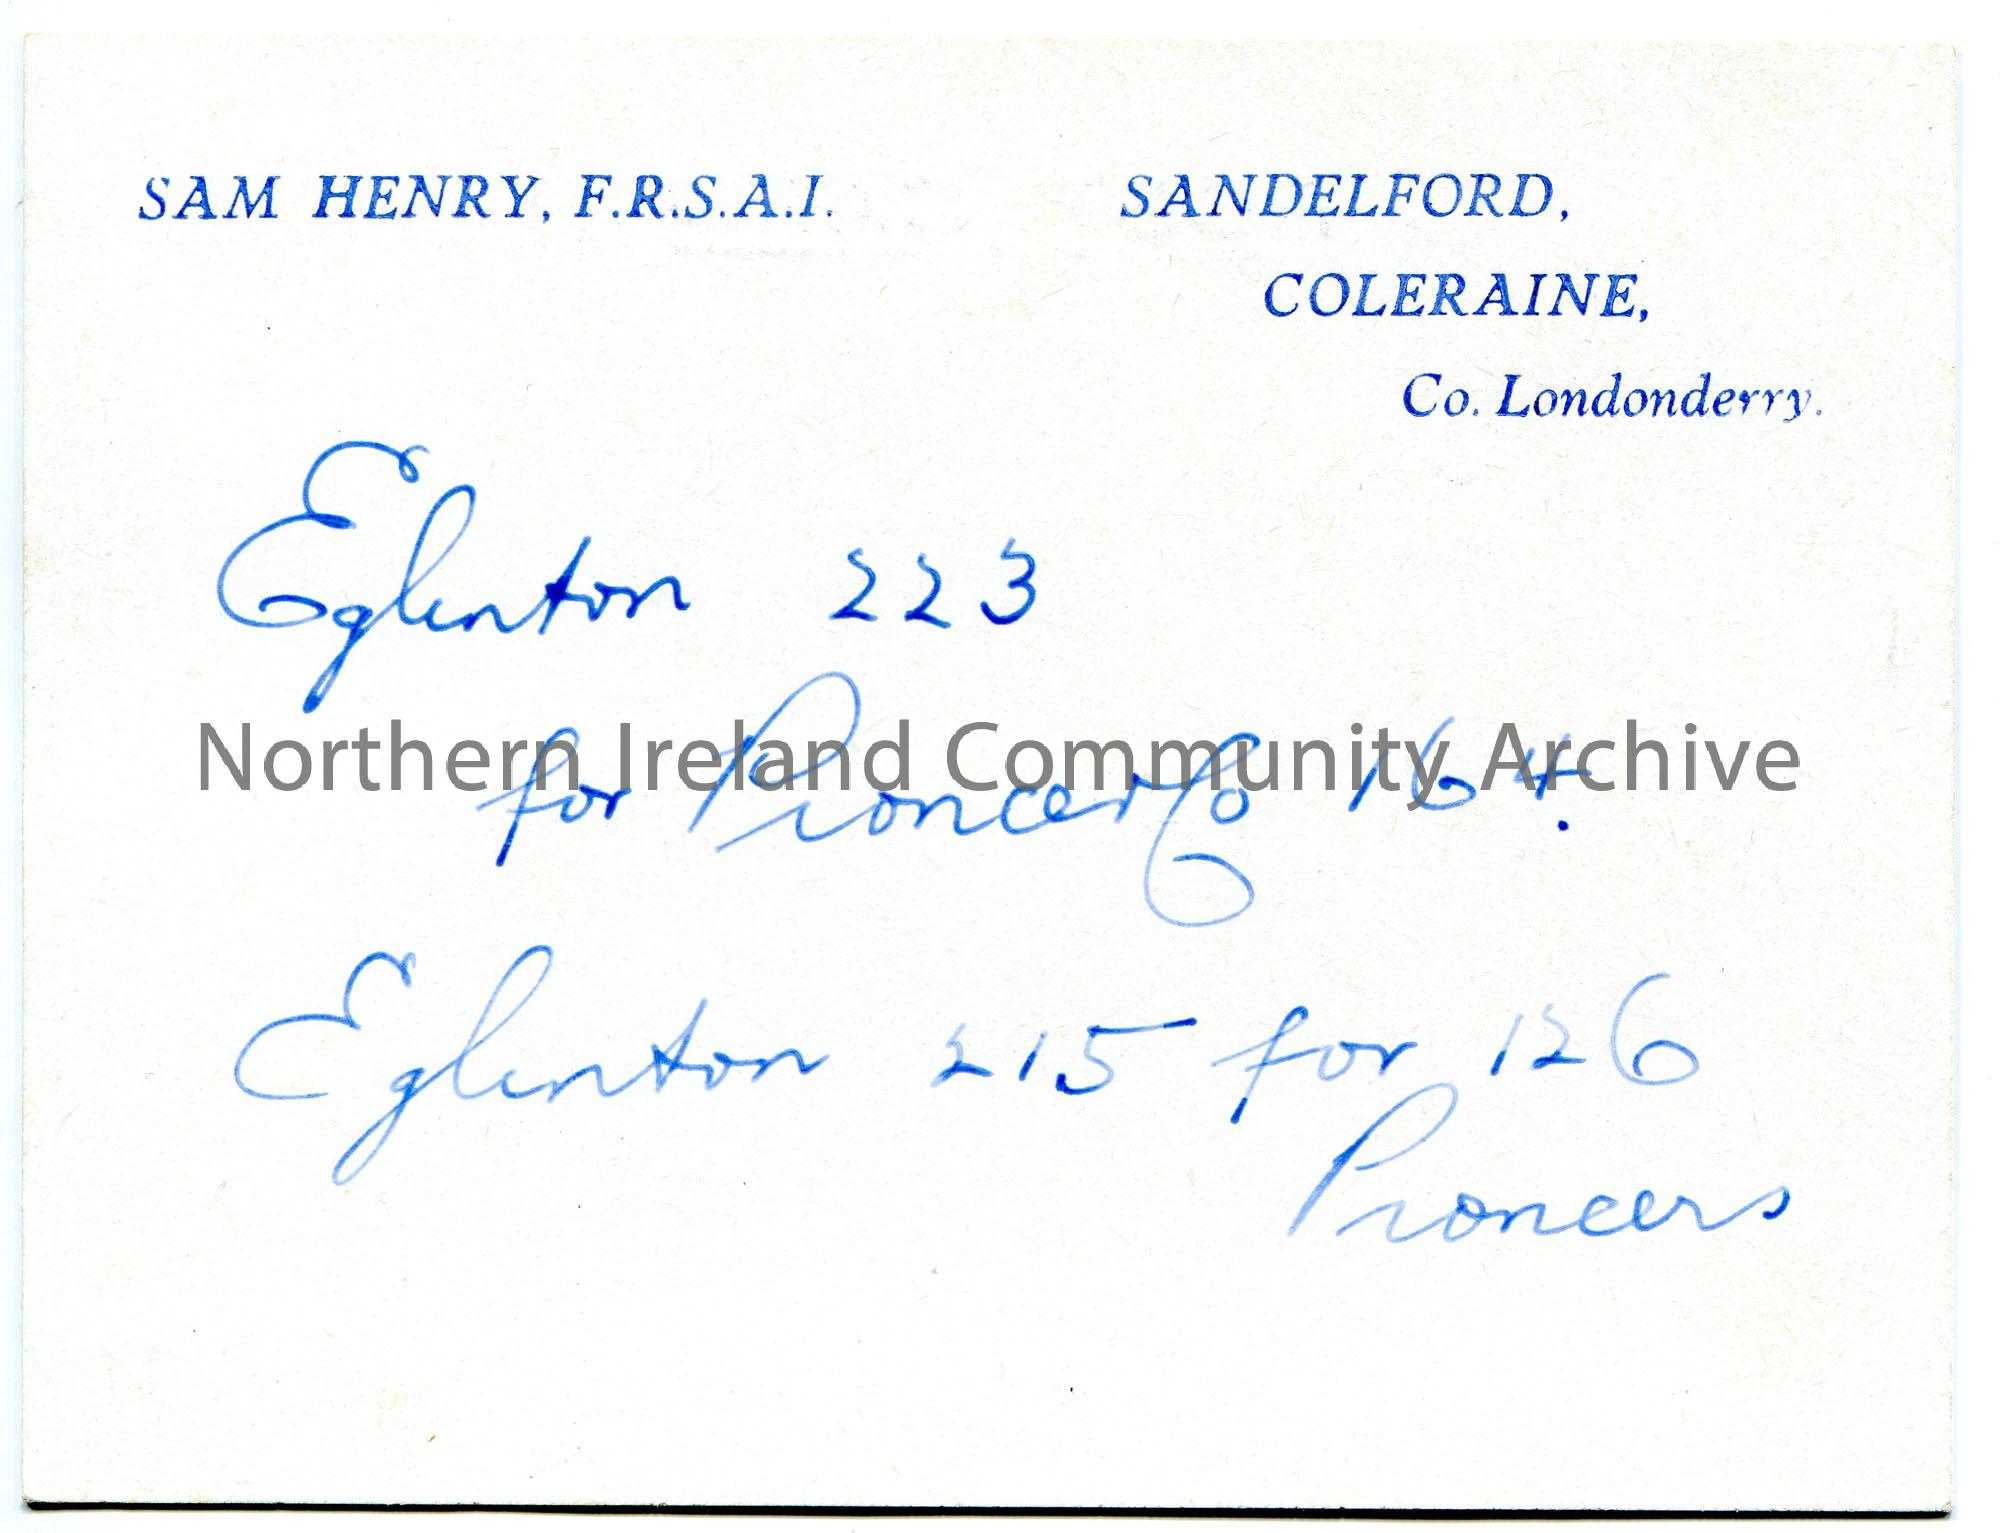 SAM HENRY, F.R.S.A.I.
SANDELFORD,
COLERAINE,
Co. Londonderry.
Eglinton 223
for Pioneer Co 164.
Northern Ireland Community Archive
Eglinton 215 for 126
Pioneers